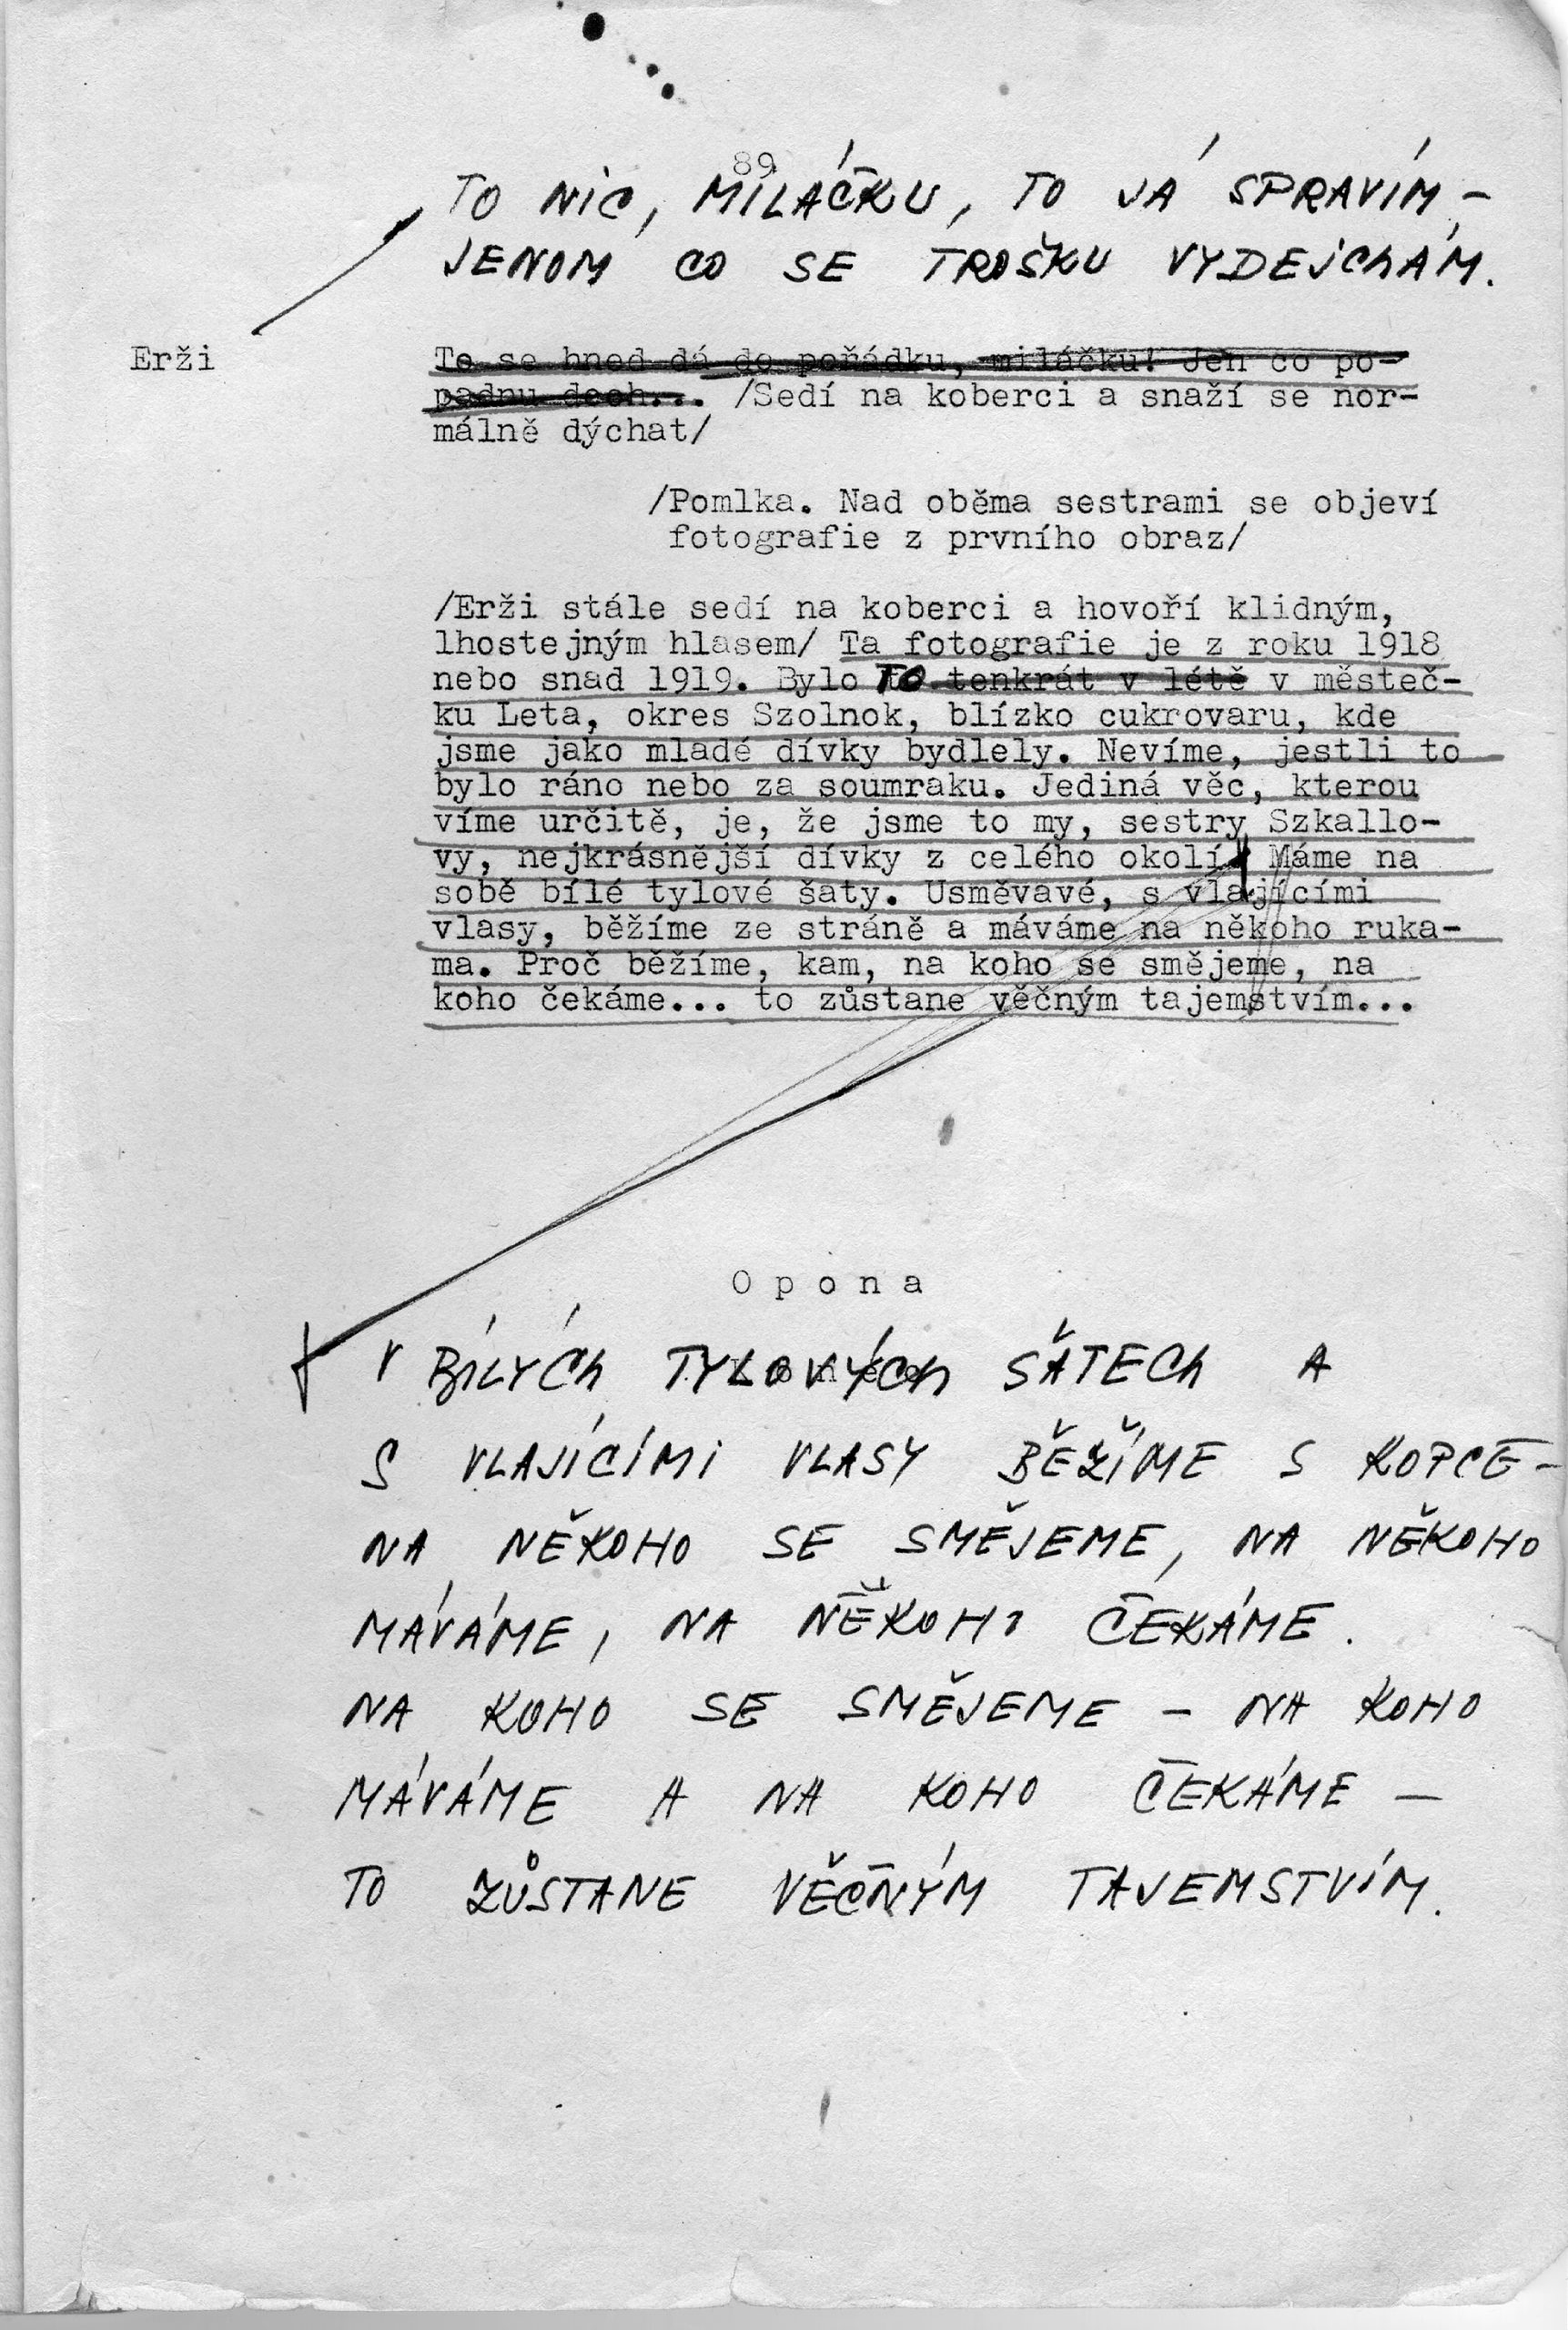 89
TO NIC, MILÁČKU, TO JÁ SPRAVÍM –
JENOM CO SE TROŠKU VYDEJCHÁM.
Erži To se hned dá do pořádku, miláčku! Jen co po-
padnu dech... /Sedí na koberci a snaží se nor-
málně dýchat/
/Pomlka. Nad oběma sestrami se objeví
fotografie z prvního obraz/
/Erži stále sedí na koberci a hovoří klidným,
lhostejným hlasem/ Ta fotografie je z roku 1918
nebo snad 1919. Bylo TO tenkrát v létě v městeč-
ku Leta, okres Szolnok, blízko cukrovaru, kde
jsme jako mladé dívky bydlely. Nevíme, jestli to
bylo ráno nebo za soumraku. Jediná věc, kterou
víme určitě, je, že jsme to my, sestry Szkallo-
vy, nejkrásnější dívky z celého okolí. Máme na
sobě bílé tylové šaty. Usměvavé, s vlajícími
vlasy, běžíme ze stráně a máváme na někoho ruka-
ma. Proč běžíme, kam, na koho se smějeme, na
koho čekáme... to zůstane věčným tajemstvím...
O p o n a
V BÍLÝCH TYLOVÝCH ŠATECH A
S VLAJÍCÍMI VLASY BĚŽÍME S KOPCE –
NA NĚKOHO SE SMĚJEME, NA NĚKOHO
MÁVÁME, NA NĚKOHO ČEKÁME.
NA KOHO SE SMĚJEME – NA KOHO
MÁVÁME A NA KOHO ČEKÁME –
TO ZŮSTANE VĚČNÝM TAJEMSTVÍM.